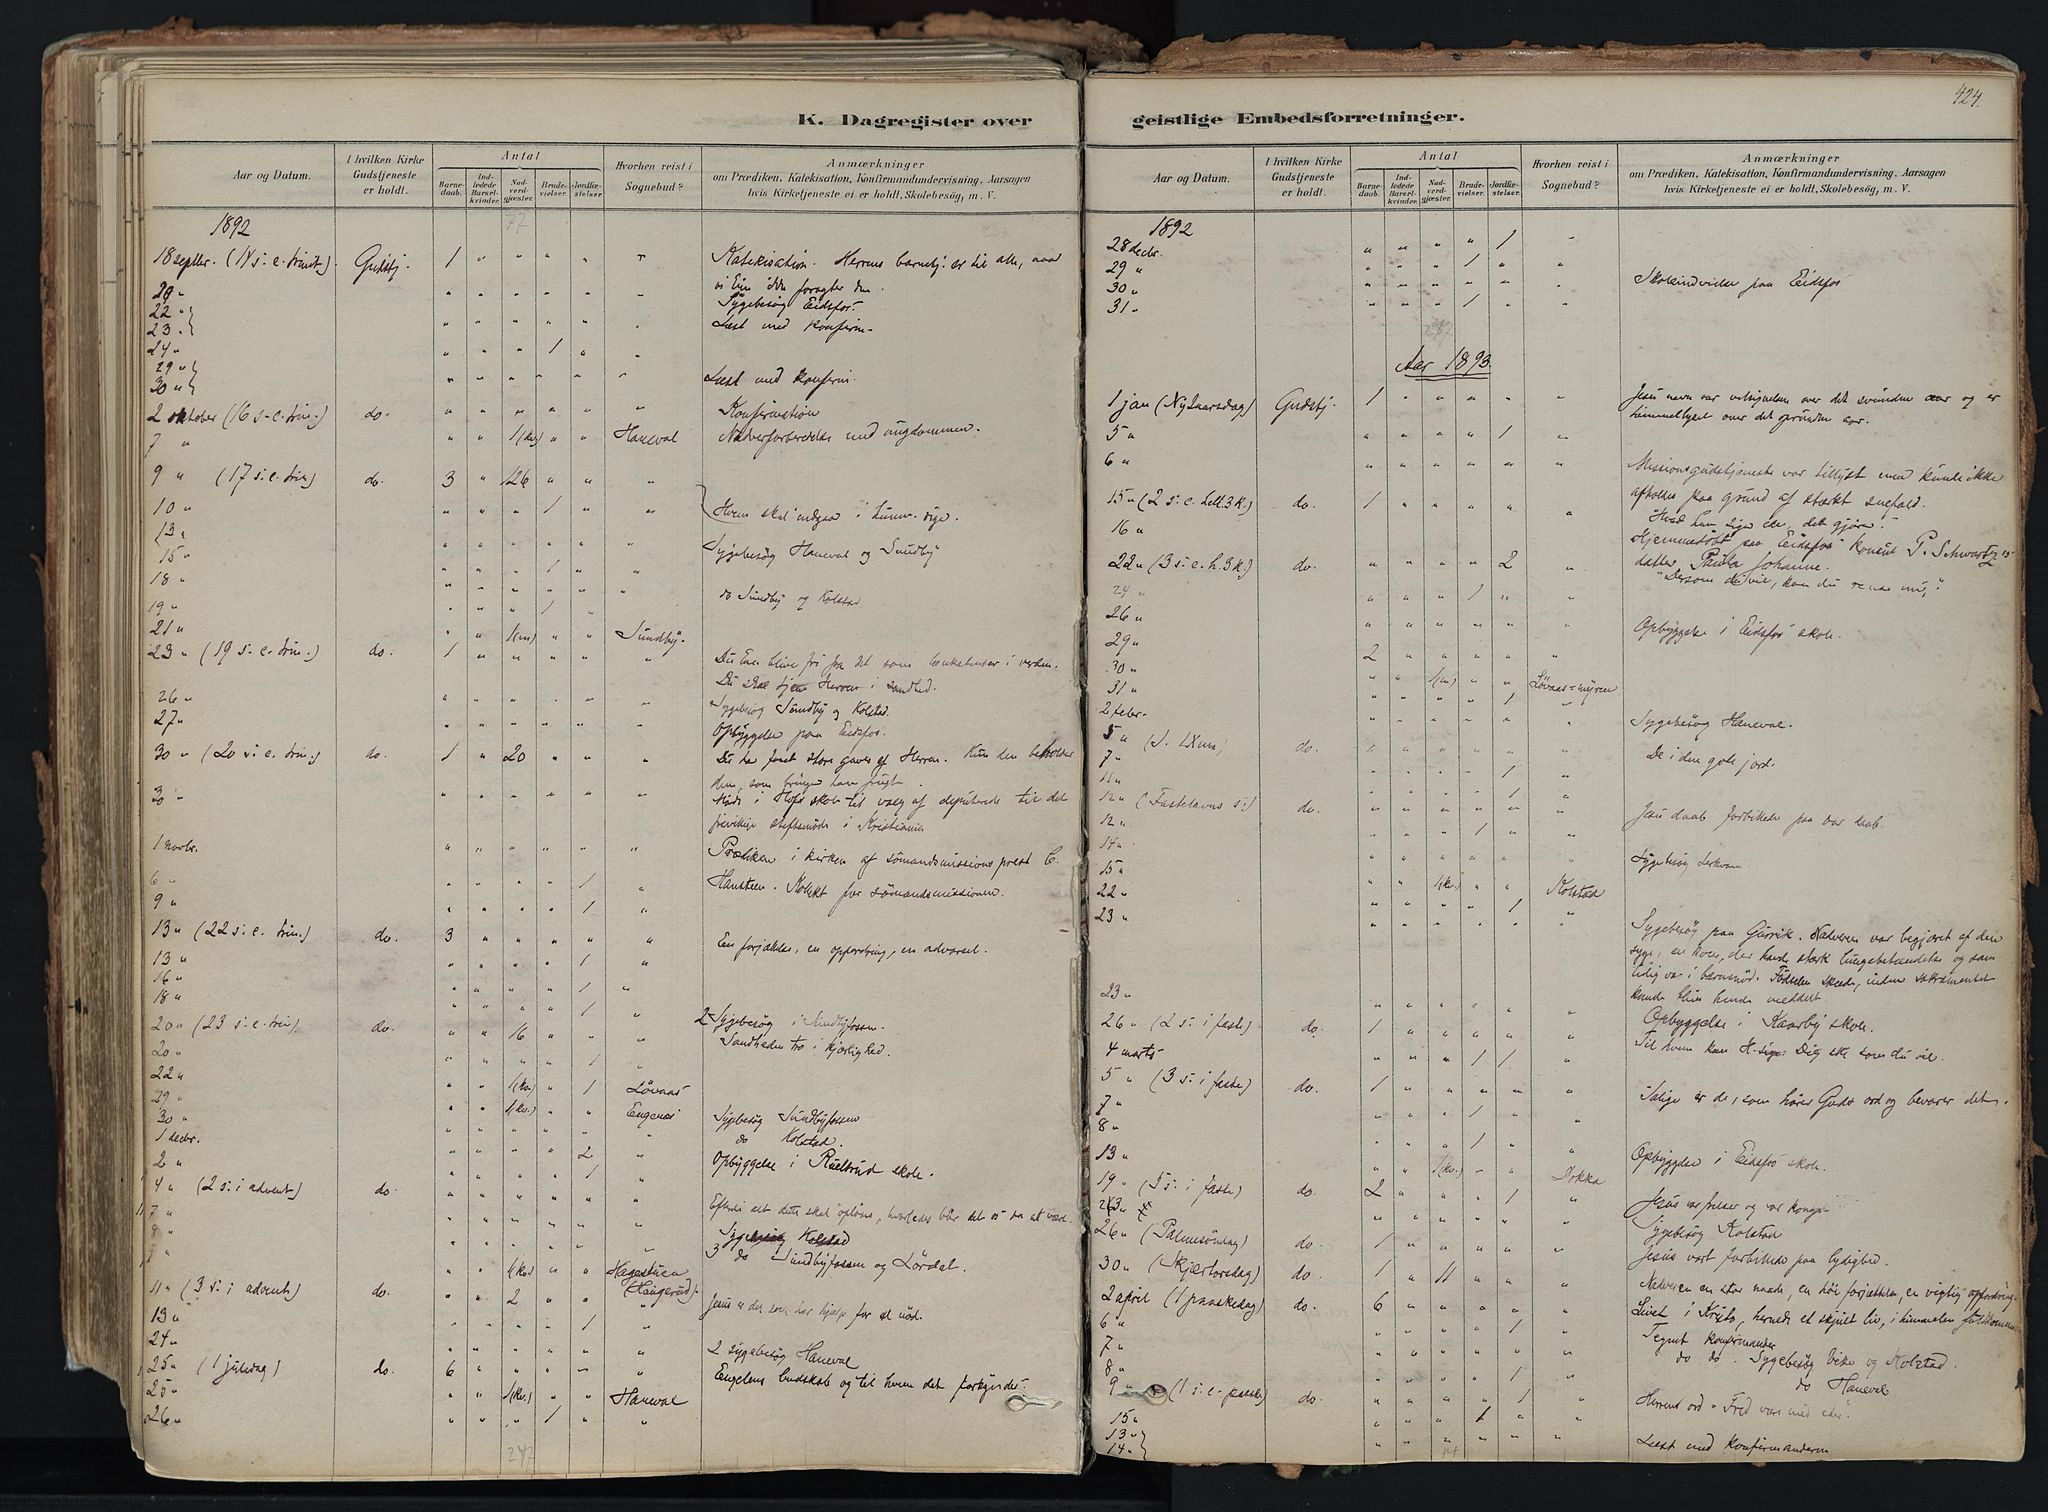 424.
K. Dagregister over geistlige Embedsforretninger.
Aar og Datum.
I hvilken Kirke Gudstjeneste er holdt.
Antal
Barnedaab.
Indledede Barselkvinder.
Nadverdgjæster.
Brudevielser.
Jordfæstelser.
Hvorhen reist i Sognebud?
Anmærkninger
om Prædiken, Katekisation, Konfirmandundervisning, Aarsagen
hvis Kirketjeneste ei er holdt, Skolebesög, m. V.
1892
18 septbr. (14 s. e. trinit.) Gudstj. 1 " " " " " Katekisation. Herrens barnehj. er til alle, naar
vi kun ikke foragter den.
Sygebesøg Eidsfos.
22 "
23 " Læst med konfirm.
24 " " " " 1 " "
29 "
30 " Læst med konfirm.
2 oktober (16 s. e. trin.) do. " " " " " " Konfirmation
7 " " " 1(kv.) " " Haneval Nadverforberedelse med ungdommen.
9 " (17 s. e. trin) do. 3 " 126 " " "
10 " " " " 1 " " Hvem skal indgaa i himm. rige.
13 "
15 " Sygebesøg Haneval og Sundby
18 "
19 " do Sundby og Kolstad
21 " " " 1(m) " " Sundby.
23 " (19 s. e. trin.) do. 1 " " " " " Du kan blive fri fra det som lænkebinder i verden.
Du skal tjene Herren i sandhed.
26 " Sygebesøg Sundby og Kolstad.
27 " Opbyggelse paa Eidsfos.
30 " (20 s. e. trin) do. 1 " 20 " " " Du har faaet store gaver af Herren. Kun den beholder
dem, som bringer ham frugt.
30 " Møde i Hofs skole til valg af deputerede til det
frivillige stiftsmøde i Kristiania
1 novbr. Prædiken i kirken af sömandsmissionsprest C.
6 " " " " " 1 " Hansteen. Kollekt for sömandsmissionen.
9 " " " " " 1 "
13 " (22 s. e. trin.) do. 3 " " " " " En forjættelse, en opfordring, en advarsel.
13 " " " " " 1 "
16 "
18 "
20 " (23 s. e. trin) do. " " 16 " " " 2 Sygebesøg i Sundbyfossen.
20 " Sandheden tro i kjærlighed.
22 " " " 1(kv.) " 1 Løvaas
29 " " " 1(kv.) " " Engenes
30 " Sygebesøg Sundbyfossen
1 decbr. do Kolstad.
2 " Opbyggelse i Rueltrud skole.
4 " (2 s. i advent) do. Efterdi alt dette skal opløses, hvorledes bör det os da at være.
7 "
8 " Sygebesøg Kolstad
9 " 3 do Sundbyfossen og Lørdal.
" " 1(kv.) " " Hagestuen
(Haugerud).
11 " (3 s. i advent) do. " " 2 " " " Jesus er den som har hjælp for al nöd.
13 " " " " " 1 "
24 " 2 sygebesøg Haneval
25 " (1 juledag) do. 6 " " " " " Engelens budskab og til hvem det forkyndes.
25 " " " 1(kv.) " " Haneval
26 " " " " 1 " "
247
1892
28 decbr. " " " " 1 "
29 " " " " 1 " "
30 " Skoleindvielse paa Eidsfos
31 " " " " 1 " "
242
Aar 1893.
1 jan (Nytaarsdag) Gudstj. 1 " " " " " Jesu navn var velsignelsen over det svundne aar og er
himmellyset over det oprundne aar.
5 " " " " " 1 "
6 " Missionsgudstjeneste var tillyst men kunde ikke
afholdes paa grund af stærkt snefald.
15 " (2 s. e. hell. 3 k.) do. 1 " " " " " "Hvad han siger eder, det gjører".
16 " Hjemmedøbt paa Eidsfos konsul P. Schwartz's
22 " (3 s. e. h. 3 k.) do. " " " " 2 " datter Paula Johanne.
24 " " " " 1 " " "Dersom du vil, kan du rense mig."
26 " Opbyggelse i Eidsfos skole.
29 " 2 " " " " "
30 " " " 1(m) " " Løvaas-myren
31 " " " " " 1 "
2 febr. Sygebesøg Haneval.
5 " (S. LXma) do. De i den gode jord.
7 " " " " " 1 "
11 " " " " " 1 "
12 " (Fastelavns s.) do. Jesu daab forbillede paa vor daab.
12 " " " " 1 " "
14 " Sygebesøg
15 " " " 1(kv.) " " Kolstad
22 " " " " " 1 "
23 " Sygebesøg paa Gurrik. Nadveren var begjæret af den
syge, en kone, der havde stærk lungebetændelse og sam-
tidig var i barnsnød. Fødselen skede, inden sakramentet
kunde blive hende meddelt.
23 " Opbyggelse i Kaarby skole.
26 " (2 s. i faste) do. 1 " " " " " Til hvem kan H. sige: Dig ske som du vil.
4 marts " " " 1 1 "
5 " (3 s. i faste) do. 1 " " " " " Salige er de, som hører Guds ord og bevarer det.
7 " " " " 1 " "
8 " " " " 1 " "
13 " Opbyggelse i Eidsfos skole.
" " 1(kv.) " " Dokka
19 " (5 s. i faste) do. 2 " " " 1 " Jesus vor frelser og vor konge
23 " Sygebesøg Kolstad
26 " (Palmesöndag) do. 1 " " " " " Jesus vort forbillede paa lydighed.
30 " (Skjærtorsdag) do. 1 " 11 " " " Nadveren en stor naade, en höi forjættelse, en vigtig opfordring.
2 april (1 paaskedag) do. 6 " " " " " Livet i Kristo, hernede et skjult liv, i himmelen fuldkomme
6 " " " " " 1 " Tegnet konfirmander
7 " do do. Sygebesøg Vike og Kolstad.
8 " " " " " 1 " do Haneval
9 " (1 s. e. paaske) do. " " " " 1 " Herrens ord "Fred være med eder".
15 " " " " 1 " "
13 "
14 " Læst med konfirmanderne